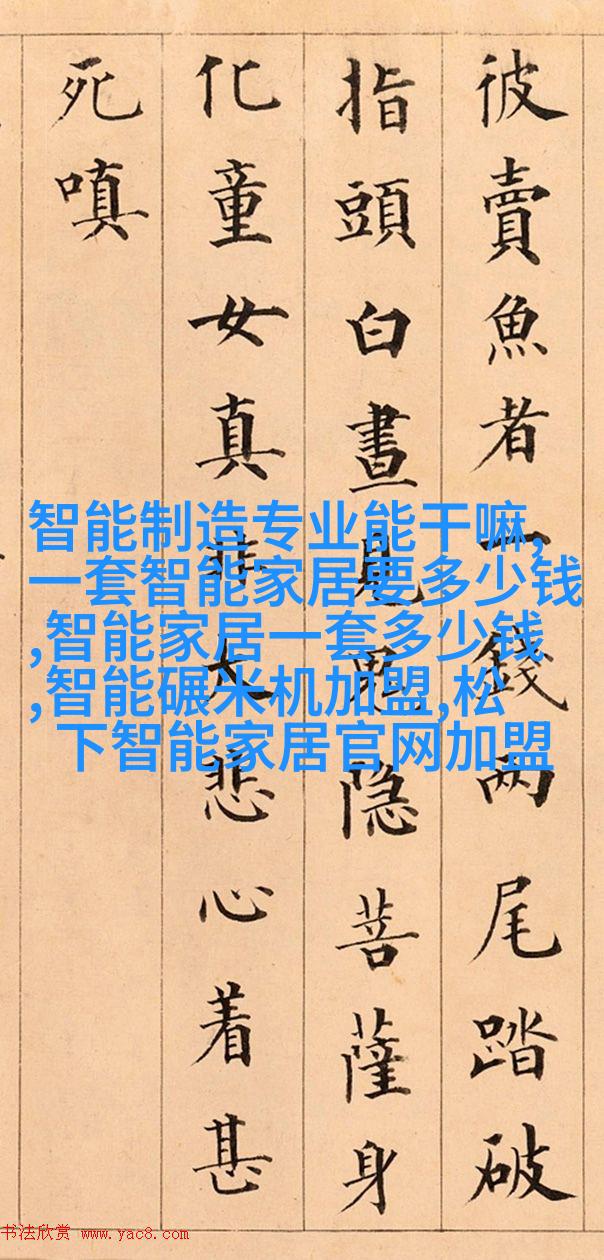 彼賣魚者一錢两尾踏破
指頭白晝見鬼隐菩薩身
化童女真悲心着甚
死嗔
智能制造专业能干嘛,
一套智能家居要多少钱
,智能家居一套多少钱
,智能碾米机加盟,松
下智能家居官网加盟
书法欣赏 www.yac8.com